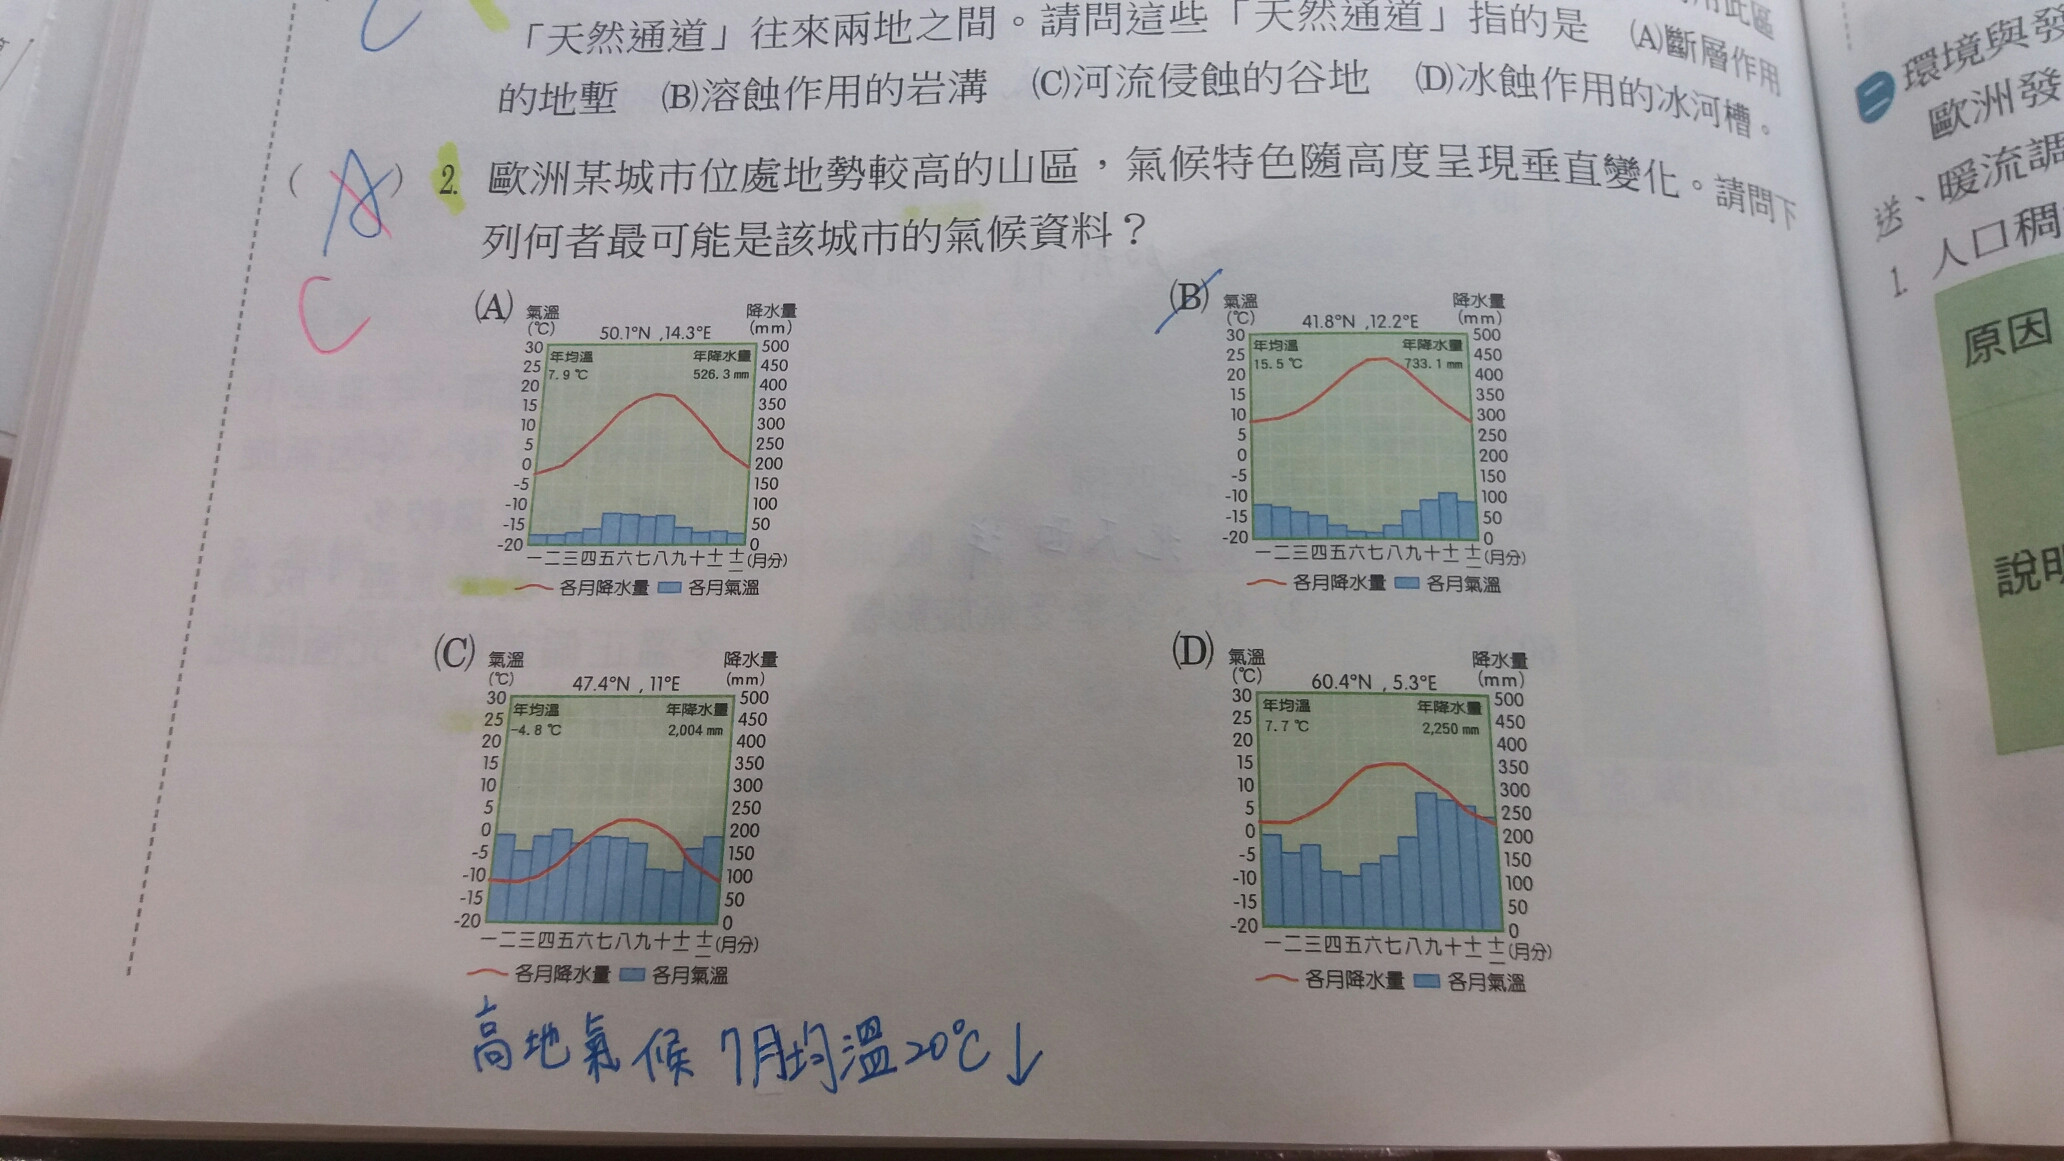 用此區
「天然通道」往來兩地之間。請問這些「天然通道」指的是 (A)斷層作用
的地塹 (B)溶蝕作用的岩溝 (C)河流侵蝕的谷地 (D)冰蝕作用的冰河槽。
( A ) 2. 歐洲某城市位處地勢較高的山區，氣候特色隨高度呈現垂直變化。請問下
列何者最可能是該城市的氣候資料？
C
(A) 氣溫 (℃) 50.1°N ,14.3°E 降水量 (mm)
年均溫 7.9 ℃ 年降水量 526.3 mm
30 25 20 15 10 5 0 -5 -10 -15 -20
500 450 400 350 300 250 200 150 100 50 0
一二三四五六七八九十十一十二(月分)
各月降水量 各月氣溫
(B) 氣溫 (℃) 41.8°N ,12.2°E 降水量 (mm)
年均溫 15.5 ℃ 年降水量 733.1 mm
30 25 20 15 10 5 0 -5 -10 -15 -20
500 450 400 350 300 250 200 150 100 50 0
一二三四五六七八九十十一十二(月分)
各月降水量 各月氣溫
(C) 氣溫 (℃) 47.4°N , 11°E 降水量 (mm)
年均溫 -4.8 ℃ 年降水量 2,004 mm
30 25 20 15 10 5 0 -5 -10 -15 -20
500 450 400 350 300 250 200 150 100 50 0
一二三四五六七八九十十一十二(月分)
各月降水量 各月氣溫
(D) 氣溫 (℃) 60.4°N , 5.3°E 降水量 (mm)
年均溫 7.7 ℃ 年降水量 2,250 mm
30 25 20 15 10 5 0 -5 -10 -15 -20
500 450 400 350 300 250 200 150 100 50 0
一二三四五六七八九十十一十二(月分)
各月降水量 各月氣溫
高地氣候 7月均溫20℃↓
二 環境與發
歐洲發
送、暖流調
1. 人口稠
原因
說明